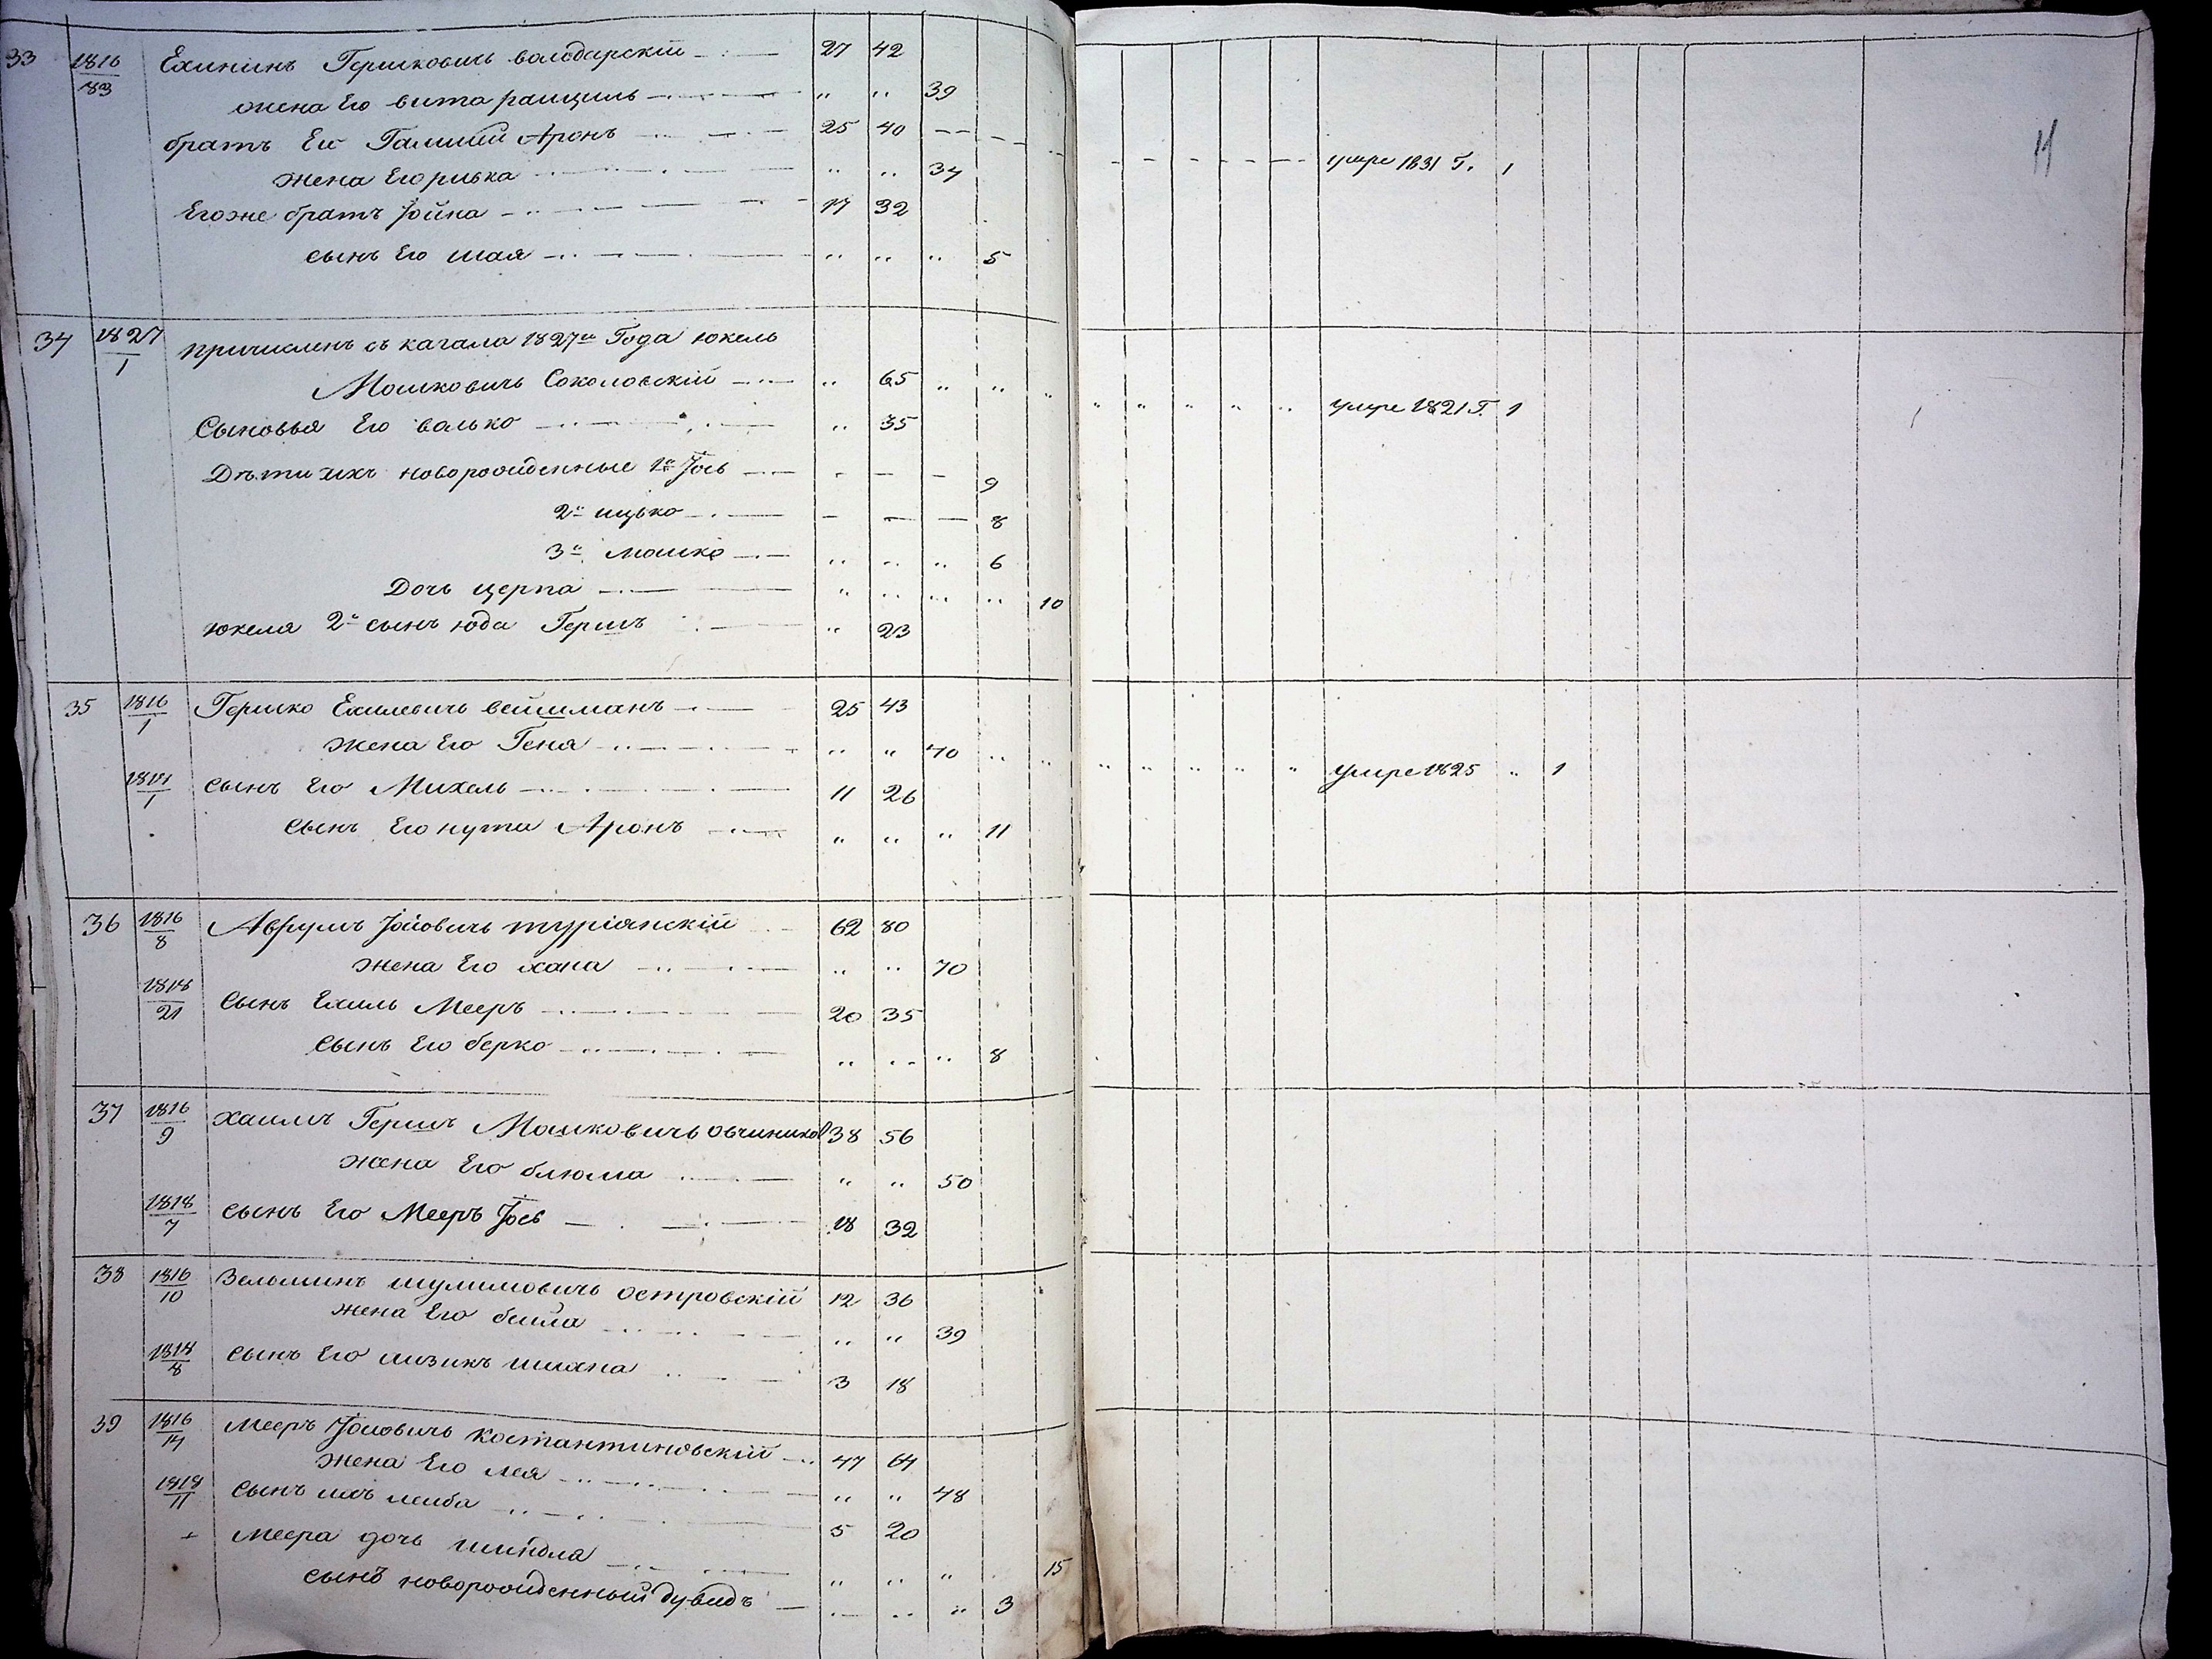 33 1816/83 Ехининъ Гершковичъ володарскій 27 42
жена Его вита рашциль " " 39
братъ Его Галший Аронъ 25 40 умре 1831 Г. 1
жена Его ривка " " 34
Егоже братъ Іойна 17 32
сынъ Его шая " " " 5
34 1827/1 причисленъ съ кагала 1827го Года юкель
Мошковичъ Соколовскій " 65 " " умре 1821 Г. 1
Сыновья Его валько " 35
Дѣти ихъ новорожденные 1й Іось 9
2й ицько 8
3й мошко " " " 6
Дочь церпа " " " " 10
юкеля 2й сынъ юда Гершъ " 23
35 1816/1 Гершко Ехилевичъ вейшманъ 25 43
жена Его Геня " " 40 умре 1825 " 1
1818/1 сынъ Его Михель 11 26
сынъ Его нута Аронъ " " " 11
36 1816/8 Аврумъ Іойовичъ туріянскій 62 80
жена Его хана " " 70
1818/21 Сынъ Ехиль Мееръ 20 35
Сынъ Его берко " " " 8
37 1816/9 Хаимъ Гершъ Мошковичъ овчиников 38 56
жена Его блюма " " 50
1818/7 сынъ Его Мееръ Іось 18 32
38 1816/10 Вельминъ шулимовичъ островскій 12 36
жена Его бейла " " 39
1818/8 Сынъ Его аизикъ шмана 3 18
39 1816/14 Мееръ Іосьовичъ костантиновскій 47 64
жена Его лея " " 48
1818/11 Сынъ ихъ лейба 5 20
меера дочь шейндля " " " 15
сынъ новорожденный дувидъ " " " 3